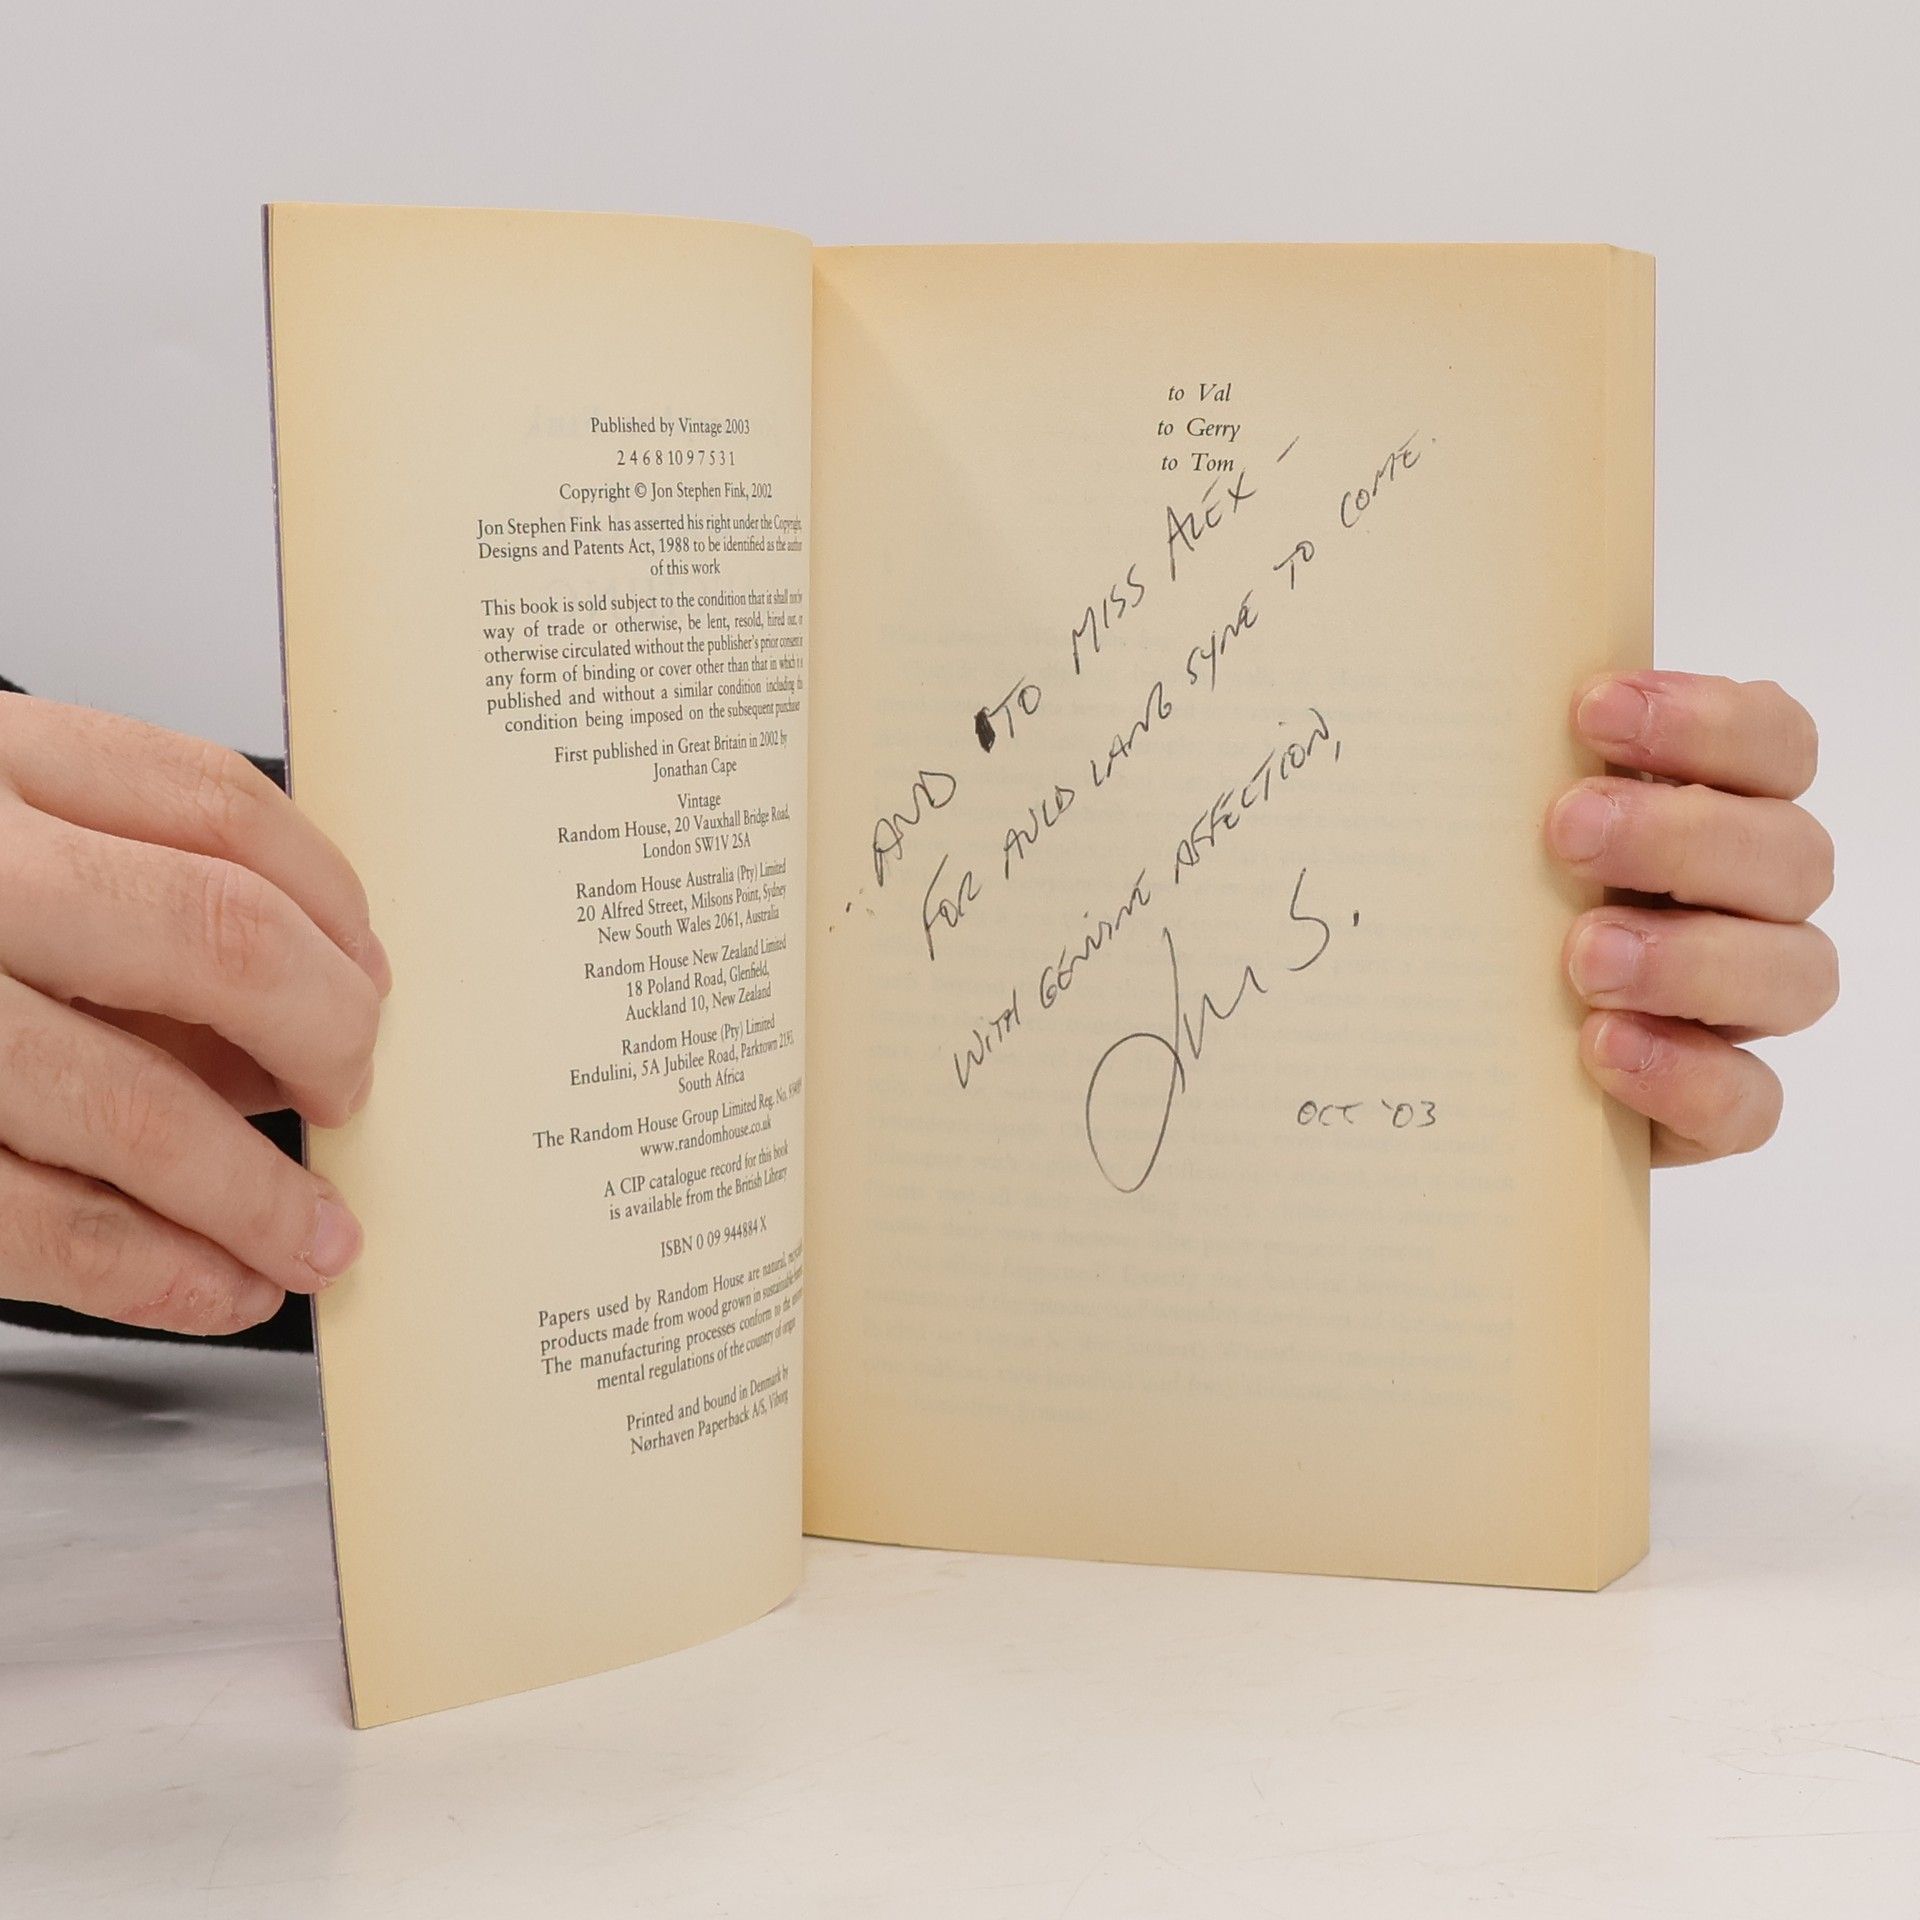 Published by Vintage 2003
2 4 6 8 10 9 7 5 3 1
Copyright © Jon Stephen Fink, 2002
Jon Stephen Fink has asserted his right under the Copyright,
Designs and Patents Act, 1988 to be identified as the author
of this work
This book is sold subject to the condition that it shall not by
way of trade or otherwise, be lent, resold, hired out, or
otherwise circulated without the publisher's prior consent in
any form of binding or cover other than that in which it is
published and without a similar condition including this
condition being imposed on the subsequent purchaser
First published in Great Britain in 2002 by
Jonathan Cape
Vintage
Random House, 20 Vauxhall Bridge Road,
London SW1V 2SA
Random House Australia (Pty) Limited
20 Alfred Street, Milsons Point, Sydney
New South Wales 2061, Australia
Random House New Zealand Limited
18 Poland Road, Glenfield,
Auckland 10, New Zealand
Random House (Pty) Limited
Endulini, 5A Jubilee Road, Parktown 2193,
South Africa
The Random House Group Limited Reg. No.
www.randomhouse.co.uk
A CIP catalogue record for this book
is available from the British Library
ISBN 0 09 944884 X
Papers used by Random House are natural,
products made from wood grown in sustainable
The manufacturing processes conform to the
mental regulations of the country of origin
Printed and bound in Denmark by
Nørhaven Paperback A/S, Viborg
to Val
to Gerry
to Tom
AND TO MISS ALEX –
FOR AULD LANG SYNE TO COME.
WITH GENUINE AFFECTION,
Jon S.
OCT '03